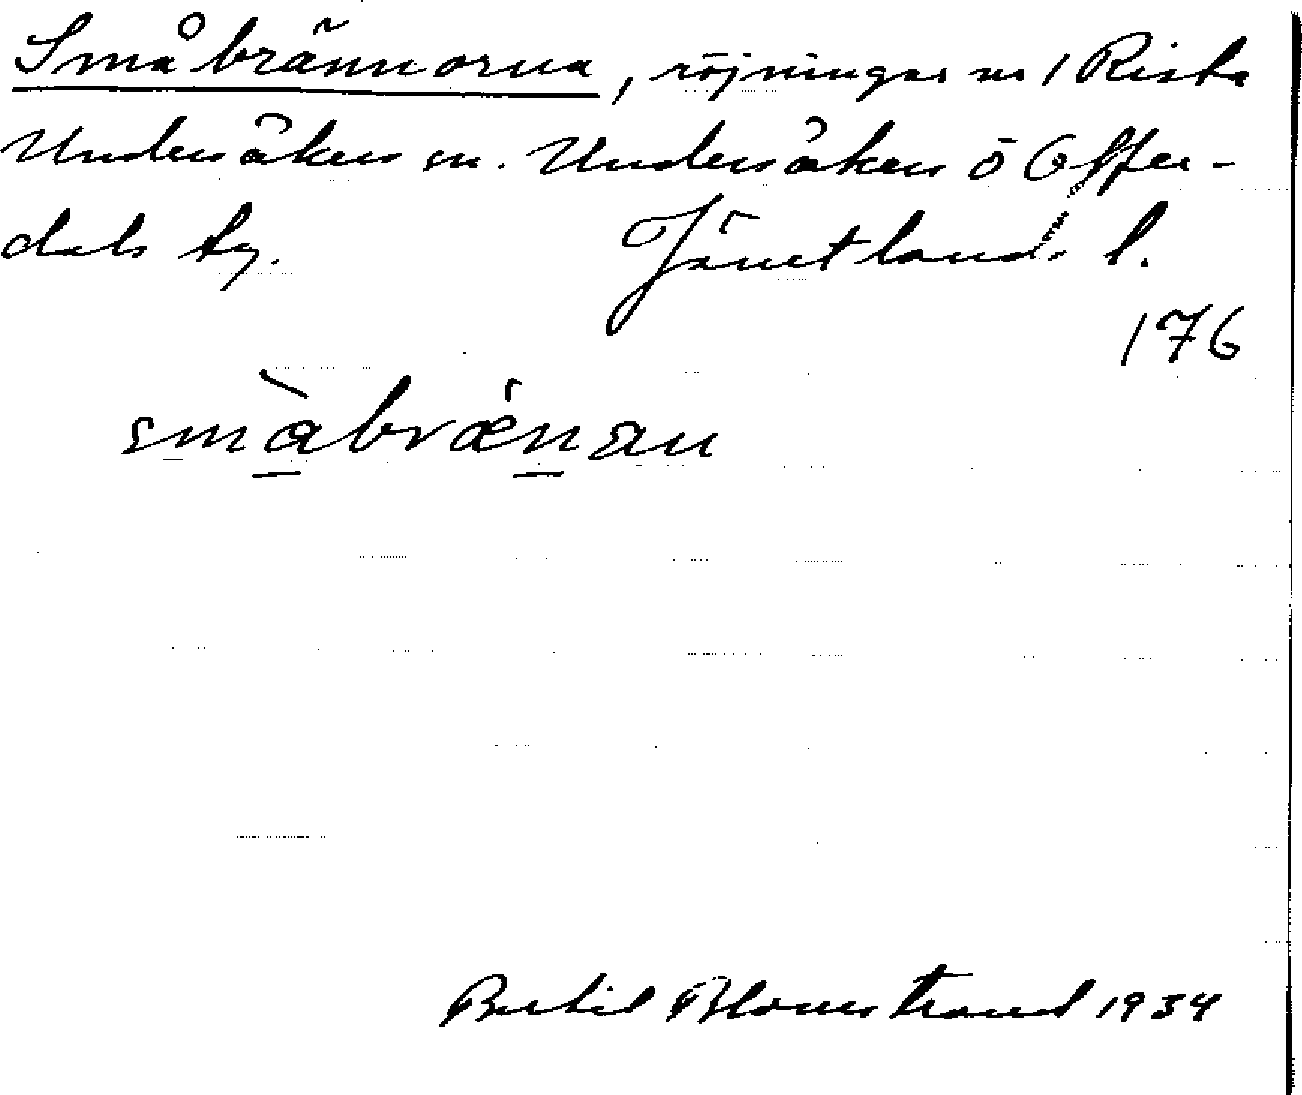 Småbrännorna, röjningar nr 1 Rista
Undersåkers sn. Undersåkers o Offer-
dals tg. Jämtlands l.
176
smàbrǽnan
Bertil Blomstrand 1934